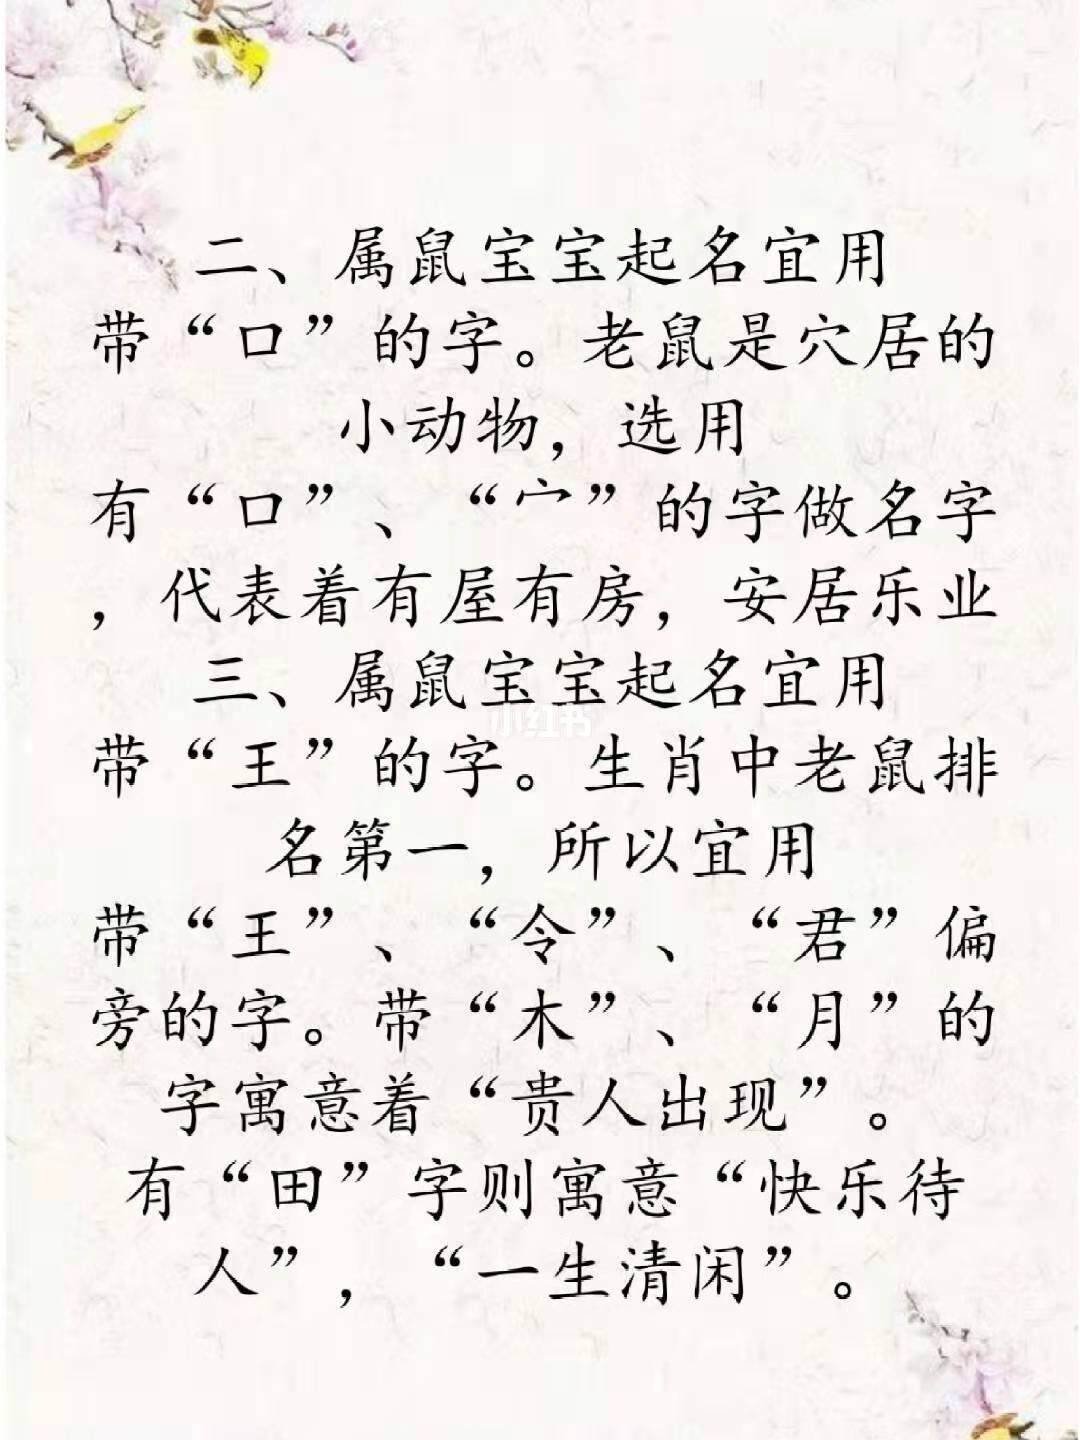 二、属鼠宝宝起名宜用
带“口”的字。老鼠是穴居的
小动物，选用
有“口”、“宀”的字做名字
，代表着有屋有房，安居乐业
三、属鼠宝宝起名宜用
小红书
带“王”的字。生肖中老鼠排
名第一，所以宜用
带“王”、“令”、“君”偏
旁的字。带“木”、“月”的
字寓意着“贵人出现”。
有“田”字则寓意“快乐待
人”，“一生清闲”。